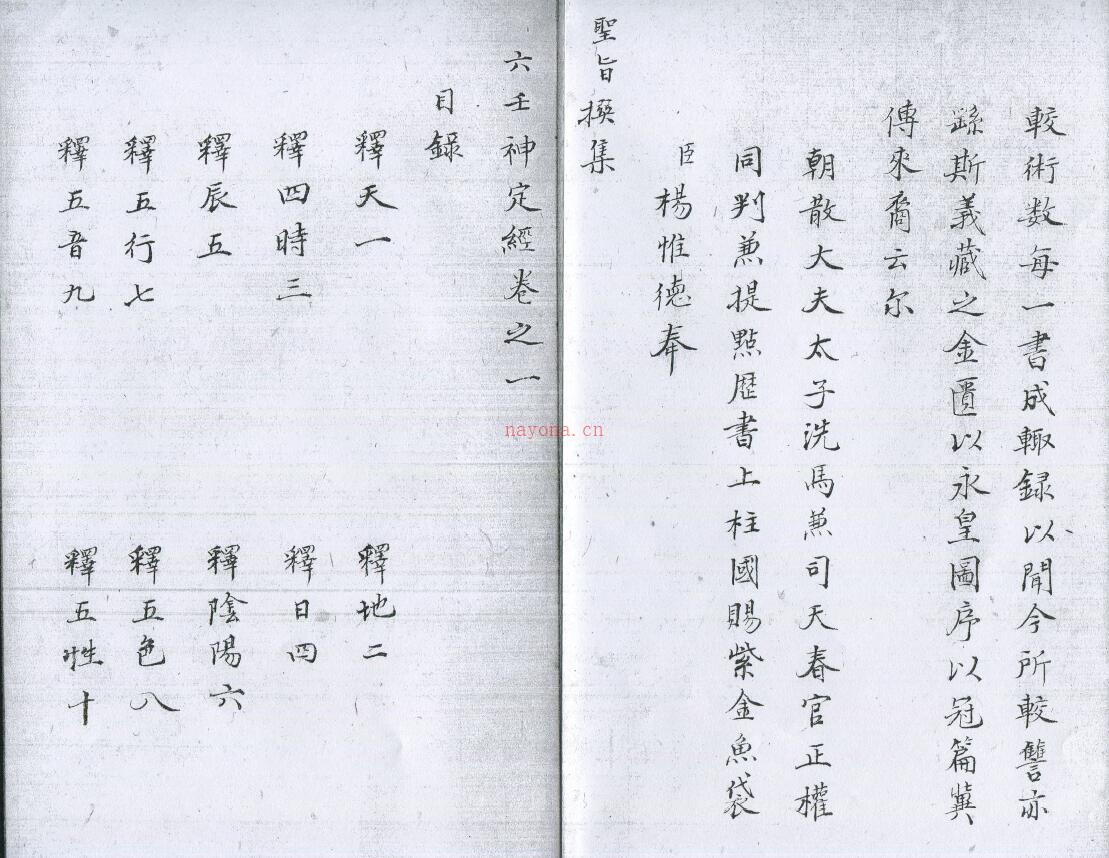 較術数每一書成輙録以聞今所較讐亦
斯義藏之金匱以永皇圖序以冠篇兾
傳來裔云尔
朝散大夫太子洗馬兼司天春官正權
同判兼提點歴書上柱國賜紫金魚袋
臣楊惟德奉
聖旨撰集
六壬神定經卷之一
目錄
釋天一 釋地二
釋四時三 釋日四
釋辰五 釋陰陽六
釋五行七 釋五色八
釋五音九 釋五性十
nayona.cn